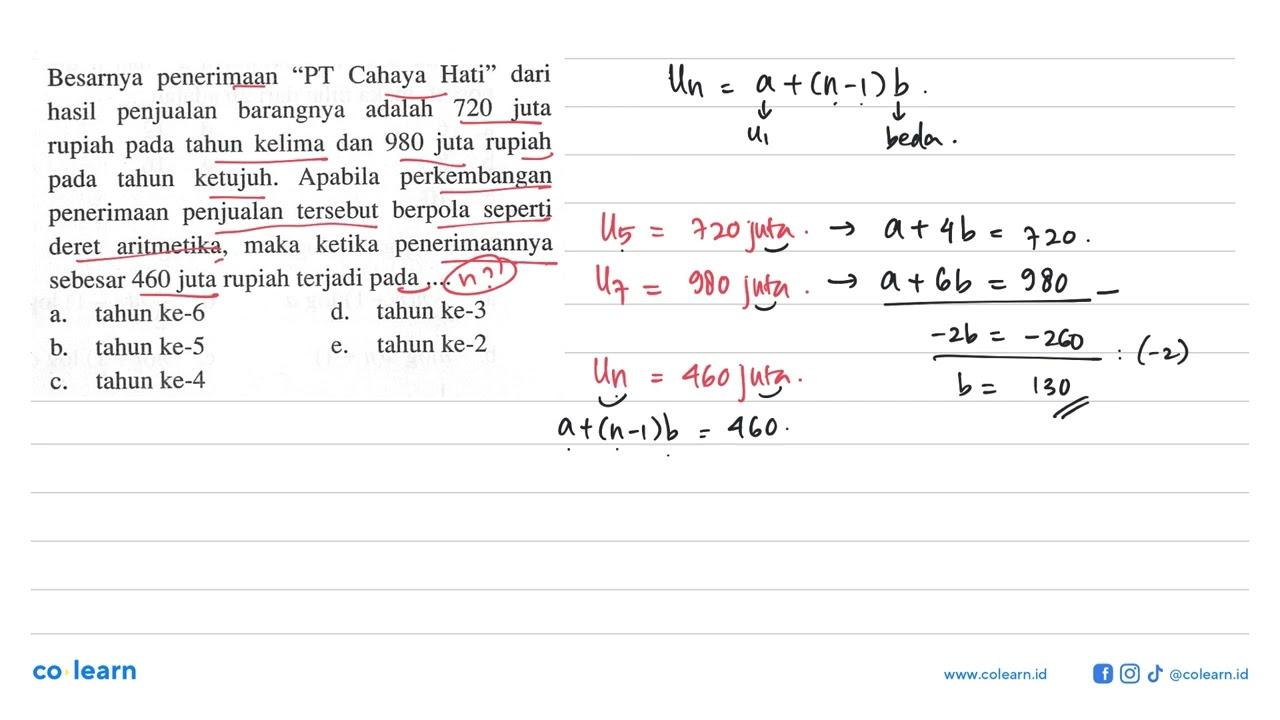 Besarnya penerimaan “PT Cahaya Hati” dari
hasil penjualan barangnya adalah 720 juta
rupiah pada tahun kelima dan 980 juta rupiah
pada tahun ketujuh. Apabila perkembangan
penerimaan penjualan tersebut berpola seperti
deret aritmetika, maka ketika penerimaannya
sebesar 460 juta rupiah terjadi pada .... n?
a. tahun ke-6
b. tahun ke-5
c. tahun ke-4
d. tahun ke-3
e. tahun ke-2
Un = a + (n-1) b.
↓ ↓
U1 beda.
U5 = 720 juta. → a + 4b = 720.
U7 = 980 juta. → a + 6b = 980 –
-2b = -260 : (-2)
b = 130
Un = 460 juta.
a + (n-1)b = 460.
co learn
www.colearn.id
@colearn.id